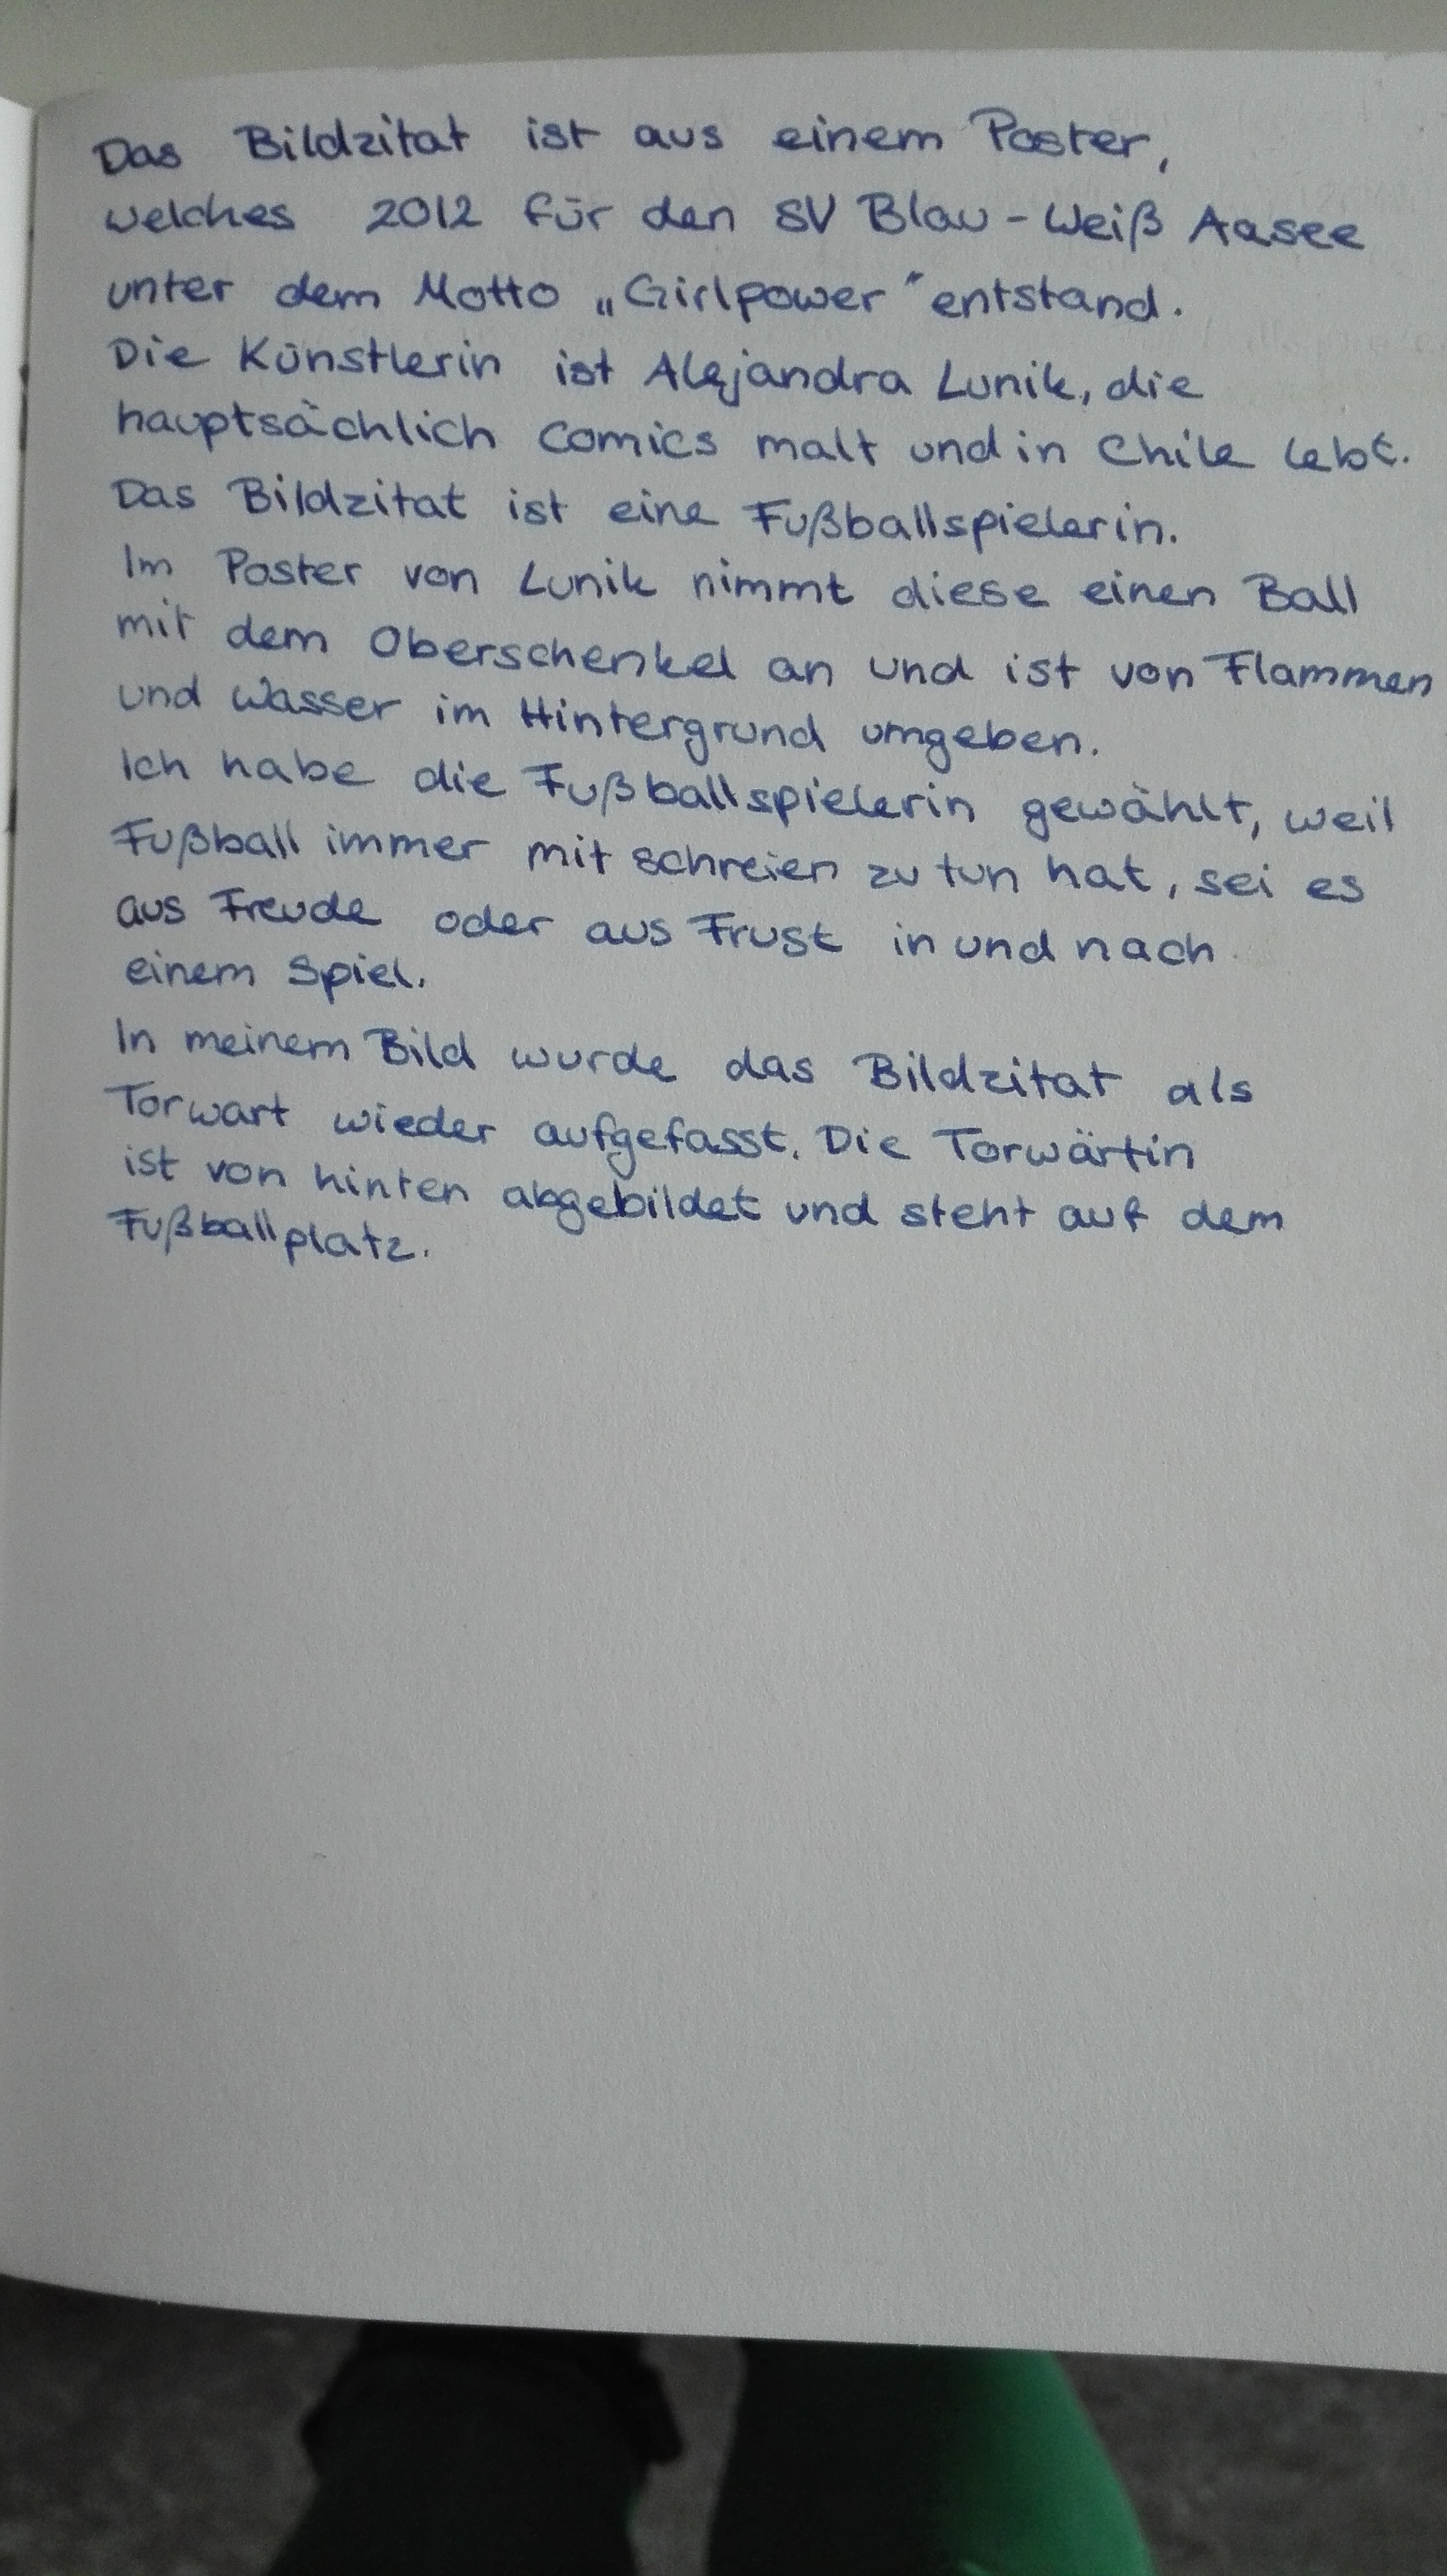 Das Bildzitat ist aus einem Poster,
welches 2012 für den SV Blau-Weiß Aasee
unter dem Motto „Girlpower" entstand.
Die Künstlerin ist Alejandra Lunik, die
hauptsächlich Comics malt und in Chile lebt.
Das Bildzitat ist eine Fußballspielerin.
Im Poster von Lunik nimmt diese einen Ball
mit dem Oberschenkel an und ist von Flammen
und Wasser im Hintergrund umgeben.
Ich habe die Fußballspielerin gewählt, weil
Fußball immer mit schreien zu tun hat, sei es
aus Freude oder aus Frust in und nach
einem Spiel.
In meinem Bild wurde das Bildzitat als
Torwart wieder aufgefasst. Die Torwärtin
ist von hinten abgebildet und steht auf dem
Fußballplatz.